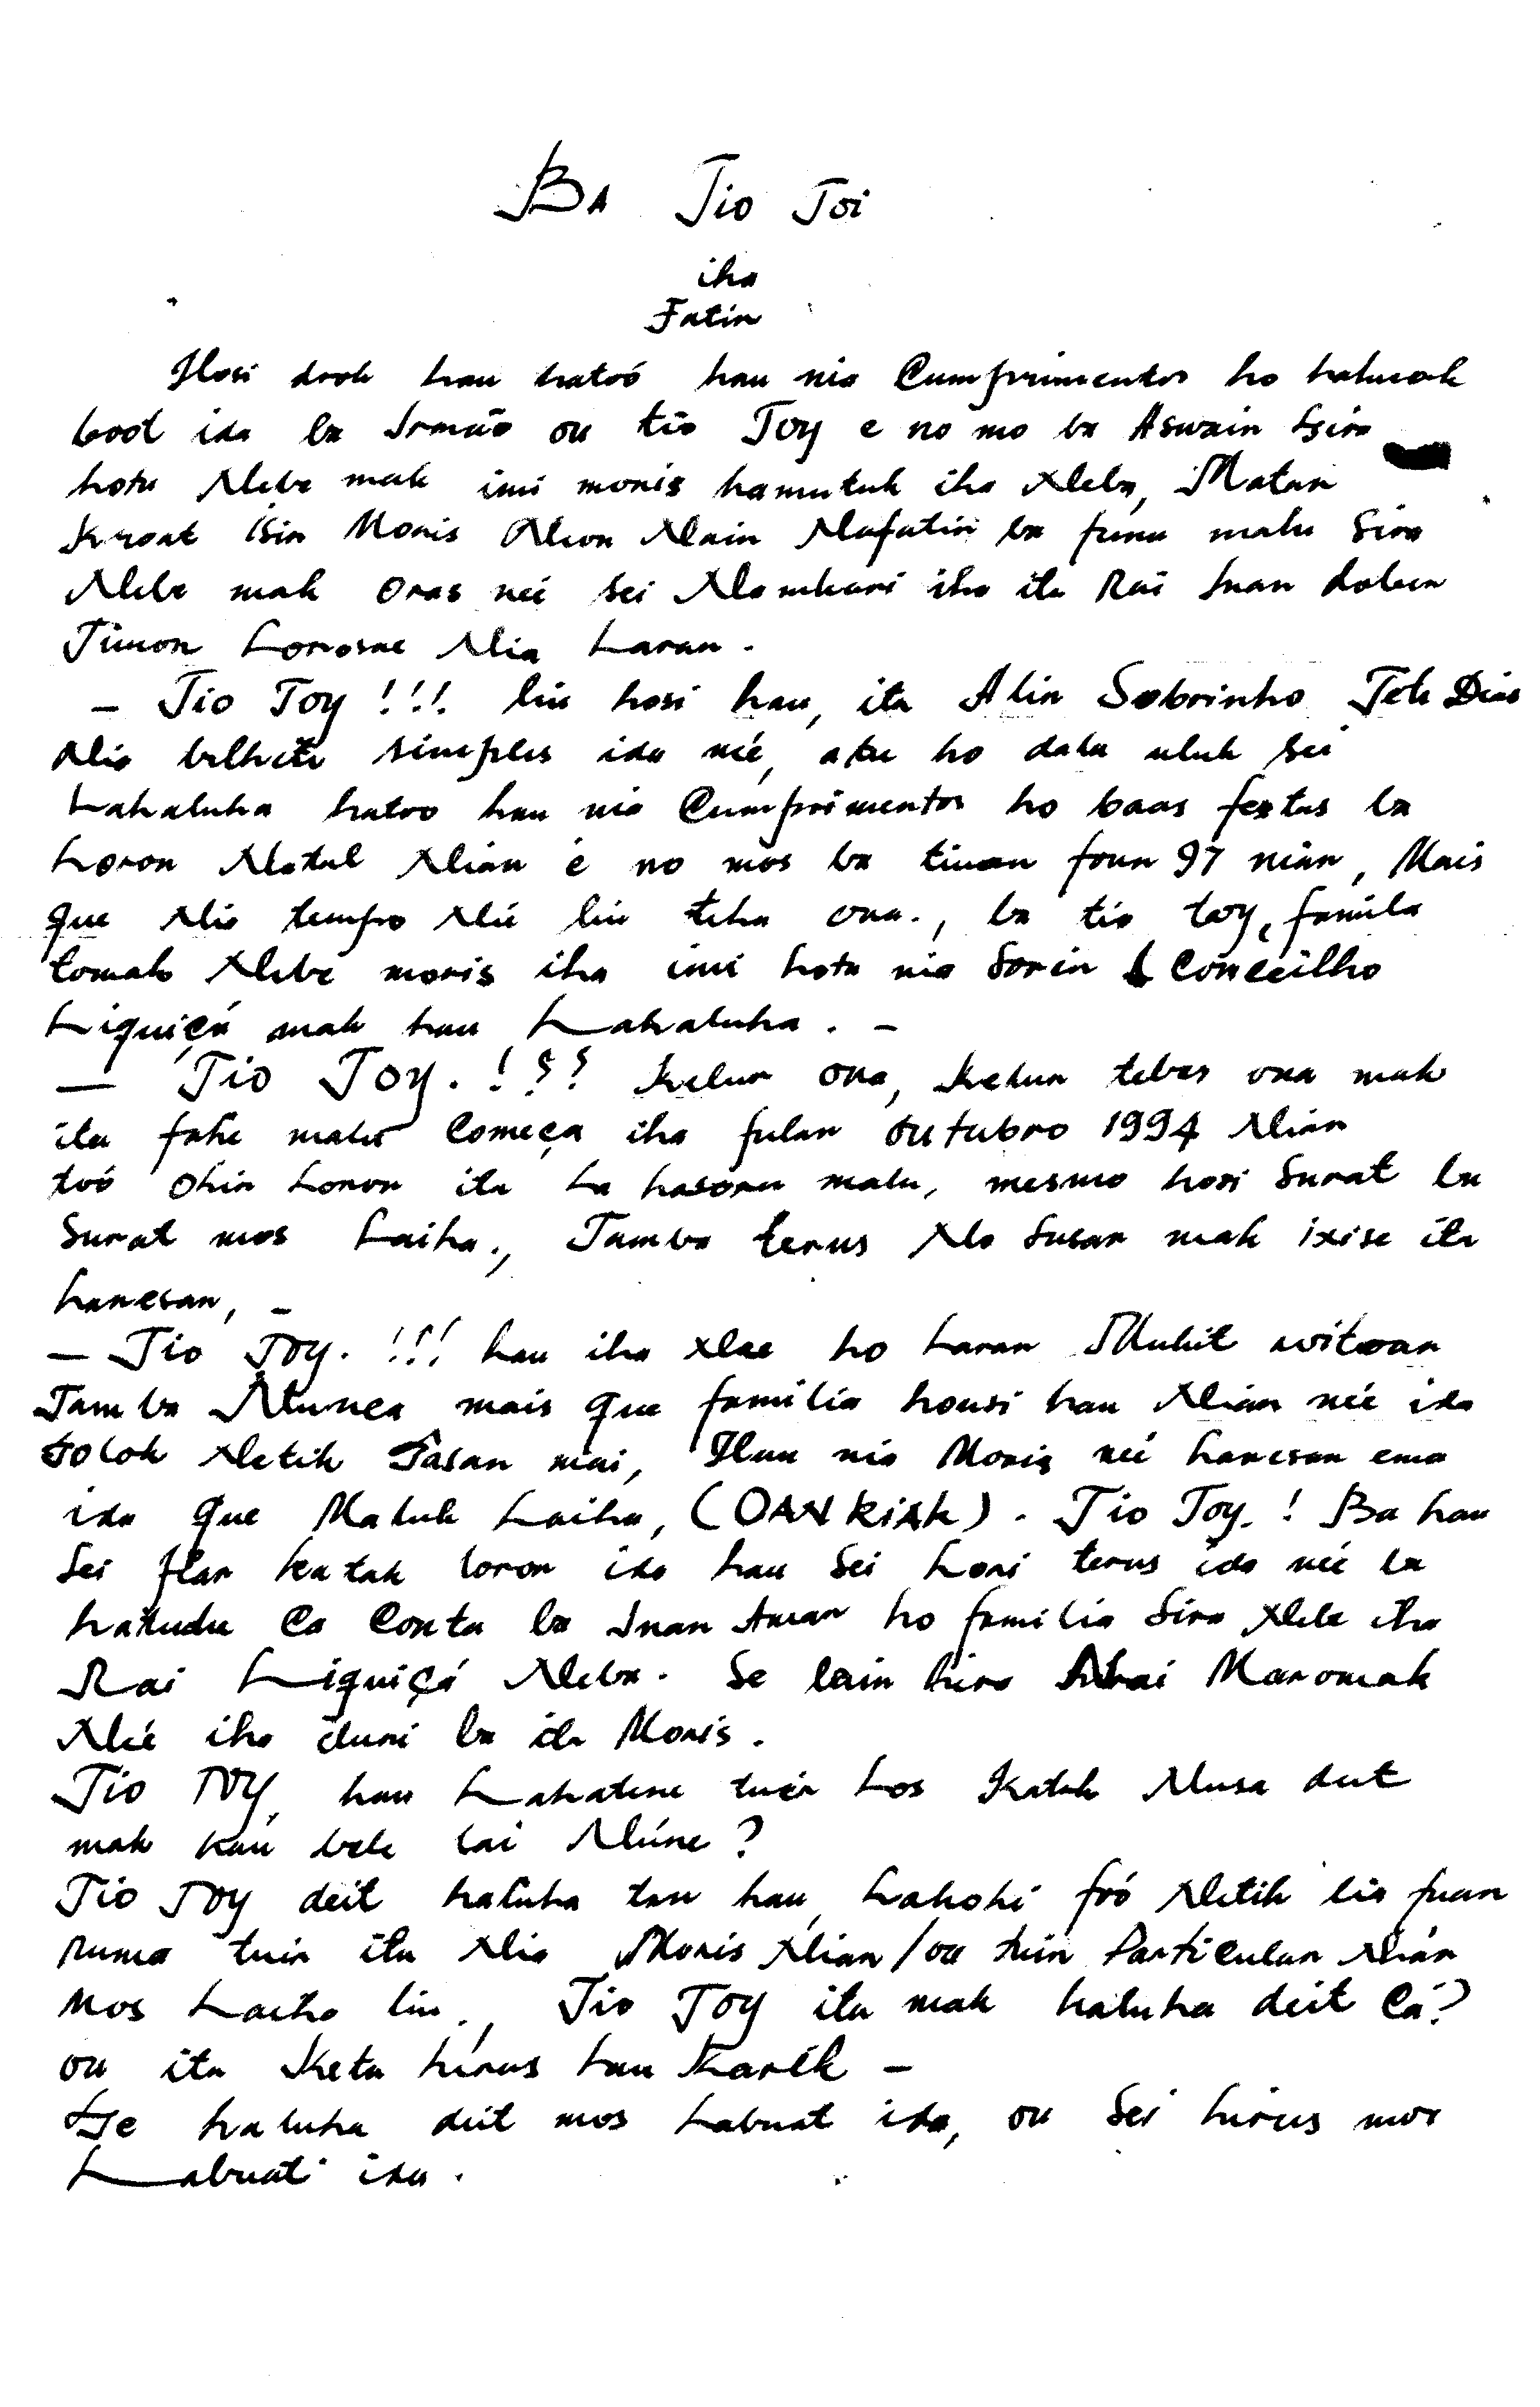 Ba Tio Toi
iha
Fatin
Hosi dook hau hatoó hau nia Cumprimentos ho hakuak
boot ida ba Irmão ou tio Toy e no mo ba Aswain Sira
hotu Nebe mak imi moris hamutuk iha Neba, Matan
Kroat Isin Moris Neon Nain Nafatin ba funu malu Sira
Nebe mak Oras neé sei Namkari iha ita Rai Inan doben
Timor Lorosae Nia Laran.
- Tio Toy!!! liu hosi hau, ita Alin Sobrinho Teki Dias
Nia bilhete simples ida neé, atu ho dala uluk sei
Lahaluha hatoo hau nia Cumprimentos ho boas festas ba
Loron Natal Nian e no mos ba tinan foun 97 nian, Mais
que Nia tempo Neé liu tiha ona., ba tio toy, famila
tomak Nebe moris iha imi hotu nia Sorin Conceilho
Liquiçá mak hau Lahaluha. -
- Tio Toy.!?? Kelur ona, Kelur tebes ona mak
ita fahe malu Começa iha fulan outubro 1994 Nian
toó Ohin Loron ita La hasoru malu, mesmo hosi Surat ba
Surat mos Laiha., Tamba terus No Susar mak ixise ita
hanesan, -
- Tio Toy.!!! hau iha Nae ho Laran Mukit uitoan
Tamba Nunca mais que familia housi hau Nian neé ida
tolok Netik Tasan mai, Hau nia Moris neé hanesan ema
ida que Maluk Laiha, (OAN KiAk). Tio Toy.! Ba hau
Sei Han katak loron ida hau Sei Lori terus ida neé ba
hatudu Ca Conta ba Inan Aman ho familia Sira Nebe iha
Rai Liquiçá Neba. Se lain hira Maromak
Neé iha duni ba ita Moris.
Tio Toy, hau Lahatene tuir Los Katak Nusa deit
mak Kau bele lai Núne?
Tio Toy deit haluha tan hau, Lakohi foó Netik lia fuan
Ruma tuir ita Nia Moris Nian/ou tuir Particular Nián
Mos Laiha liu., Tio Toy ita mak haluha deit Cá?
ou ita Keta hirus hau Karik -
Se haluha deit mos Labuat ida, ou Sei hirus mos
Labuati ida.